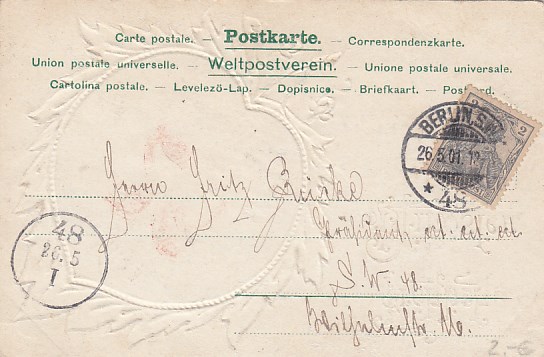 Carte postale. — Postkarte. — Correspondenzkarte.
Union postale universelle. — Weltpostverein. — Unione postale universale.
Cartolina postale. — Levelező-Lap. — Dopisnice. — Briefkaart. — Postcard.
2 2
BERLIN S.W.
26.5.01.
* 48
Herrn Fritz
ect. ect. ect.
S. W. 48.
Wilhelmstr.
48
26.5
I
2.-€